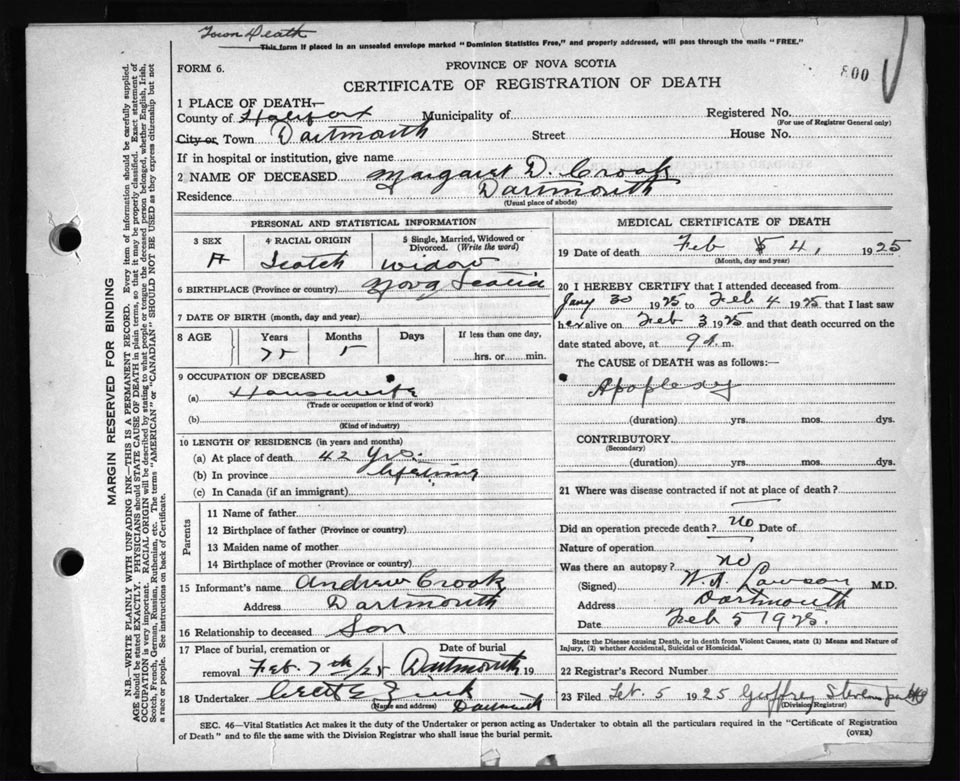 Town Death
This form if placed in an unsealed envelope marked "Dominion Statistics Free," and properly addressed, will pass through the mails "FREE."
FORM 6.
PROVINCE OF NOVA SCOTIA
800
CERTIFICATE OF REGISTRATION OF DEATH
1 PLACE OF DEATH—
County of Halifax Municipality of Registered No.
(For use of Registrar General only)
City or Town Dartmouth Street House No.
If in hospital or institution, give name
2 NAME OF DECEASED Margaret D. Crook
Residence Dartmouth
(Usual place of abode)
PERSONAL AND STATISTICAL INFORMATION
3 SEX 4 RACIAL ORIGIN 5 Single, Married, Widowed or Divorced. (Write the word)
Scotch Widow
6 BIRTHPLACE (Province or country) Nova Scotia
7 DATE OF BIRTH (month, day and year)
8 AGE Years Months Days If less than one day,
75 5 hrs. or min.
9 OCCUPATION OF DECEASED
(a) Housewife
(Trade or occupation or kind of work)
(b)
(Kind of industry)
10 LENGTH OF RESIDENCE (in years and months)
(a) At place of death 42 yrs.
(b) In province Lifetime
(c) In Canada (if an immigrant)
Parents
11 Name of father
12 Birthplace of father (Province or country)
13 Maiden name of mother
14 Birthplace of mother (Province or country)
15 Informant's name Andrew Crook
Address Dartmouth
16 Relationship to deceased Son
17 Place of burial, cremation or removal Date of burial
Feb. 7th/25 Dartmouth 19
18 Undertaker Zink
(Name and address) Dartmouth
MEDICAL CERTIFICATE OF DEATH
19 Date of death Feb 4, 1925
(Month, day and year)
20 I HEREBY CERTIFY that I attended deceased from
Jany 30 1925 to Feb 4 1925 that I last saw
her alive on Feb 3 1925 and that death occurred on the
date stated above, at 9 A. m.
The CAUSE of DEATH was as follows:—
Apoplexy
(duration) yrs. mos. dys.
CONTRIBUTORY
(Secondary)
(duration) yrs. mos. dys.
21 Where was disease contracted if not at place of death?
Did an operation precede death? No Date of
Nature of operation
Was there an autopsy? No
(Signed) Lawson M.D.
Address Dartmouth
Date Feb 5 1925.
State the Disease causing Death, or in death from Violent Causes, state (1) Means and Nature of
Injury, (2) whether Accidental, Suicidal or Homicidal.
22 Registrar's Record Number
23 Filed Feb. 5 1925 Geoffrey Stevens
(Division Registrar)
SEC. 46—Vital Statistics Act makes it the duty of the Undertaker or person acting as Undertaker to obtain all the particulars required in the "Certificate of Registration
of Death" and to file the same with the Division Registrar who shall issue the burial permit.
(OVER)
MARGIN RESERVED FOR BINDING
N.B.—WRITE PLAINLY WITH UNFADING INK—THIS IS A PERMANENT RECORD. Every item of information should be carefully supplied.
AGE should be stated EXACTLY. PHYSICIANS should STATE CAUSE OF DEATH in plain terms, so that it may be properly classified. Exact statement of
OCCUPATION is very important. RACIAL ORIGIN will be described by stating to what people or tongue the deceased person belonged, whether English, Irish,
Scotch, French, German, Russian, Ruthenian, etc. The terms "AMERICAN" or "CANADIAN" SHOULD NOT BE USED as they express citizenship but not
a race or people. See instructions on back of Certificate.